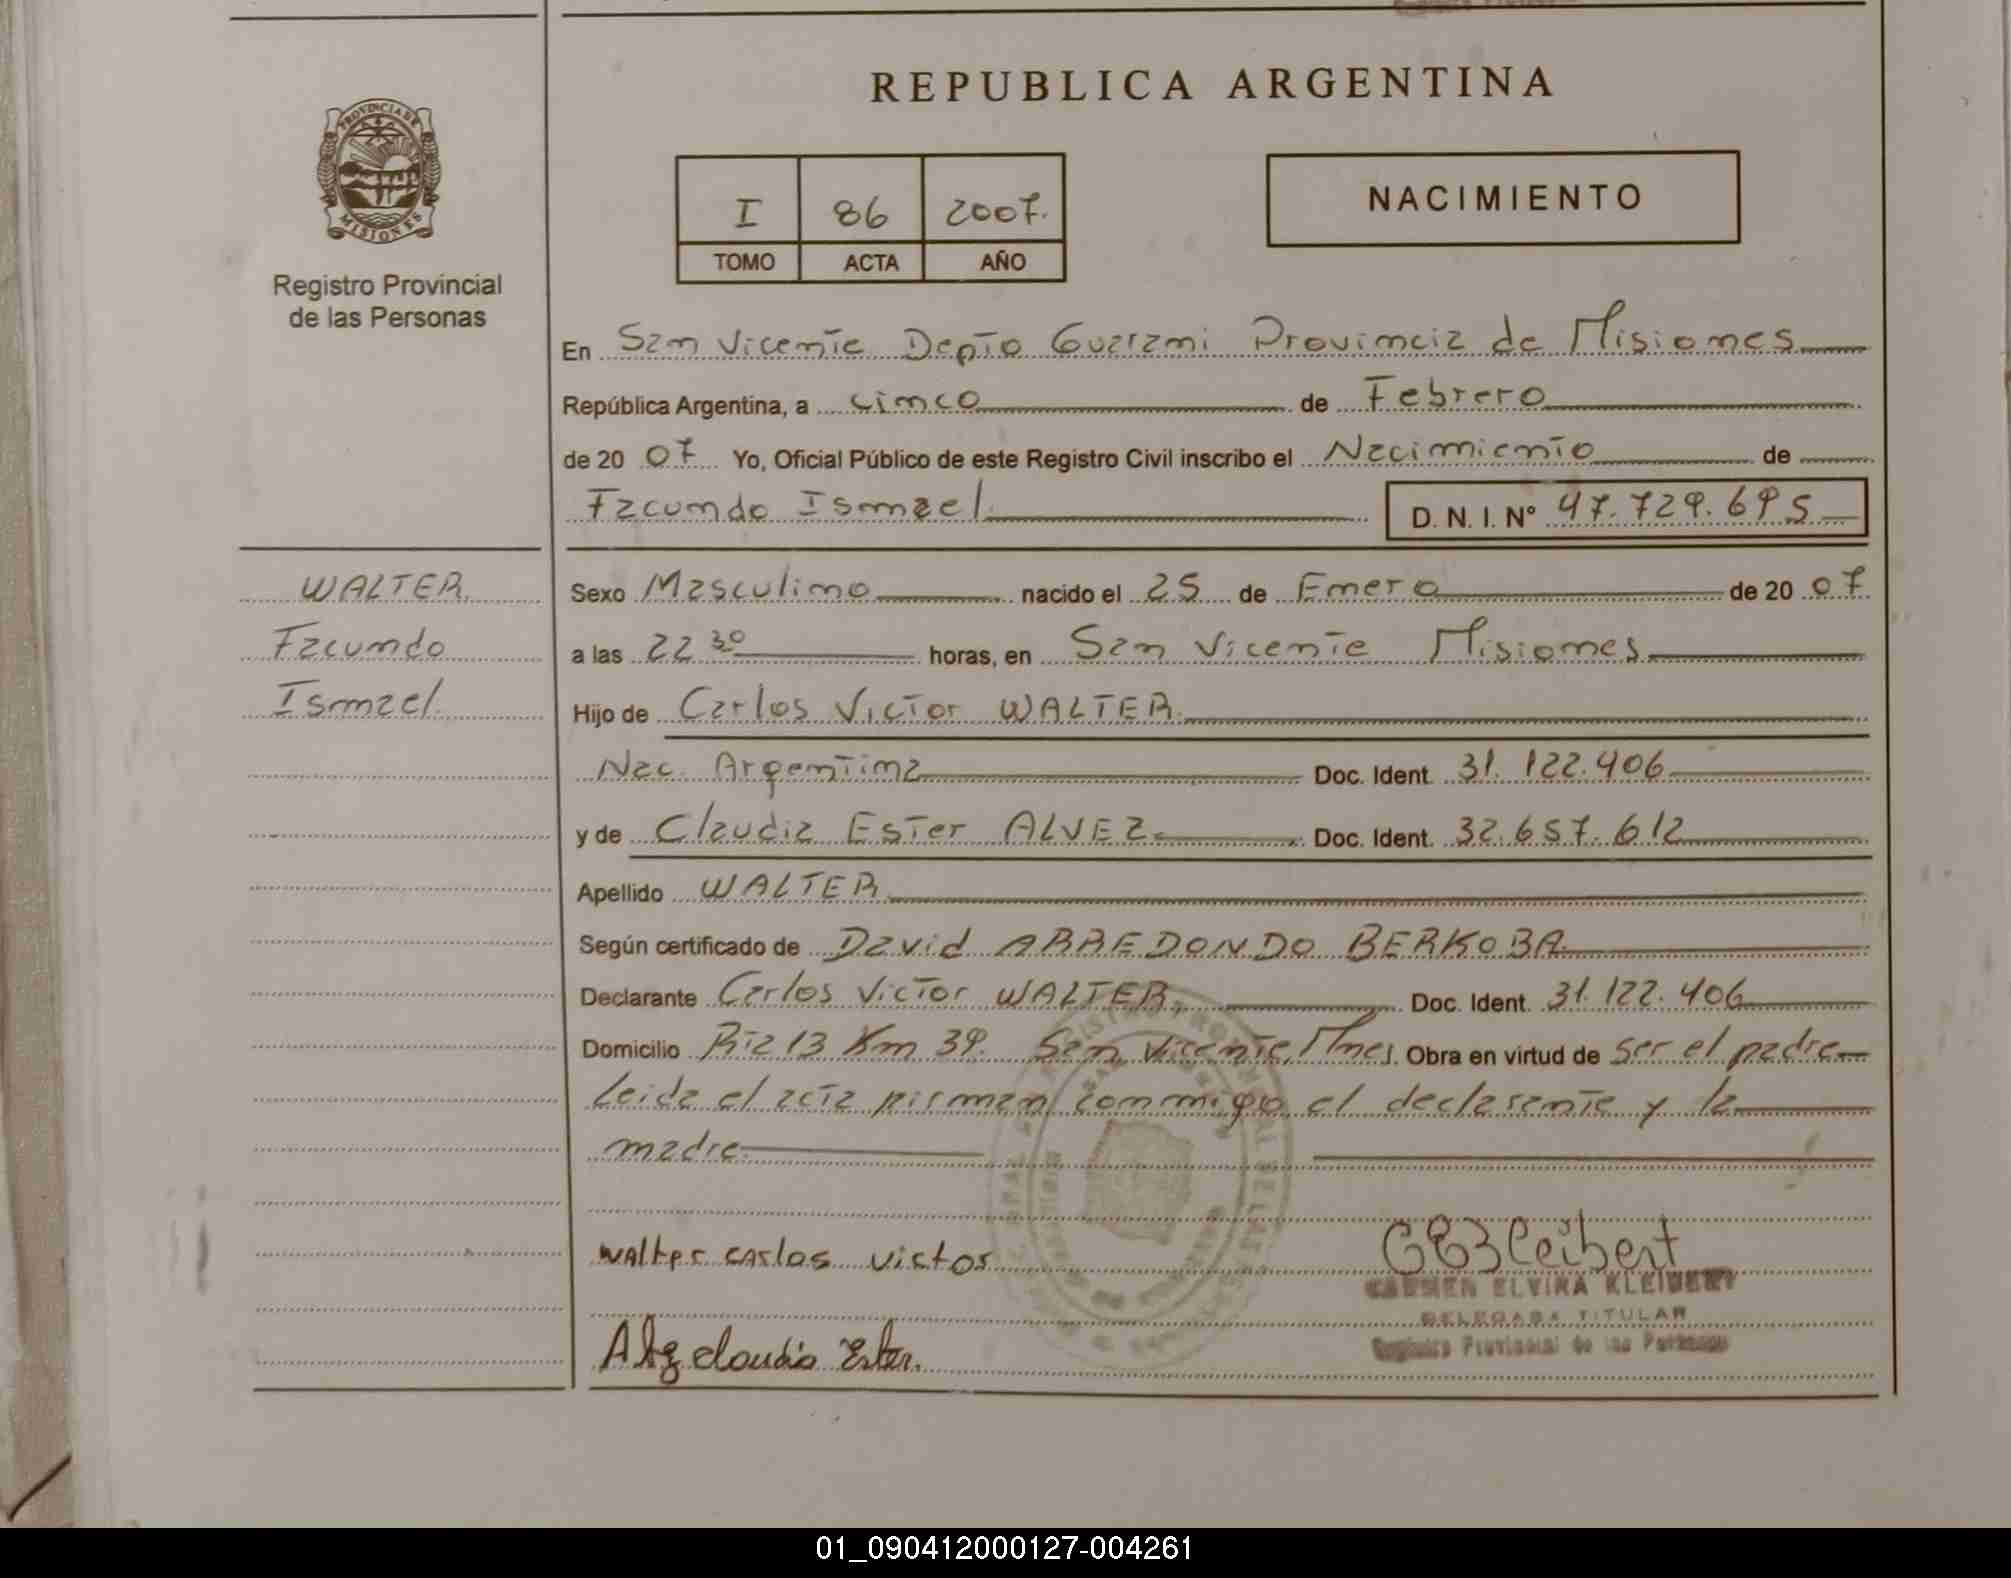 REPUBLICA ARGENTINA
PROVINCIA DE MISIONES
Registro Provincial
de las Personas
I 86 2007.
TOMO ACTA AÑO
NACIMIENTO
En San Vicente Depto Guarani Provincia de Misiones
República Argentina, a cinco de Febrero
de 20 07 Yo, Oficial Público de este Registro Civil inscribo el Nacimiento de
Facundo Ismael D. N. I. Nº 47.729.695
WALTER
Facundo
Ismael
Sexo Masculino nacido el 25 de Enero de 20 07
a las 22 30 horas, en San Vicente Misiones
Hijo de Carlos Victor WALTER
Nac. Argentina Doc. Ident. 31.122.406
y de Claudia Ester ALVEZ Doc. Ident. 32.657.612
Apellido WALTER
Según certificado de David ARREDONDO BERKOBA
Declarante Carlos Victor WALTER Doc. Ident. 31.122.406
Domicilio Rta 13 Km 39. San Vicente, Mnes. Obra en virtud de ser el padre
Leida el acta firman conmigo el declarante y la
madre
Walter carlos victor
CEKleibert
CARMEN ELVIRA KLEIBERT
DELEGADA TITULAR
Registro Provincial de las Personas
claudia Ester.
01_090412000127-004261